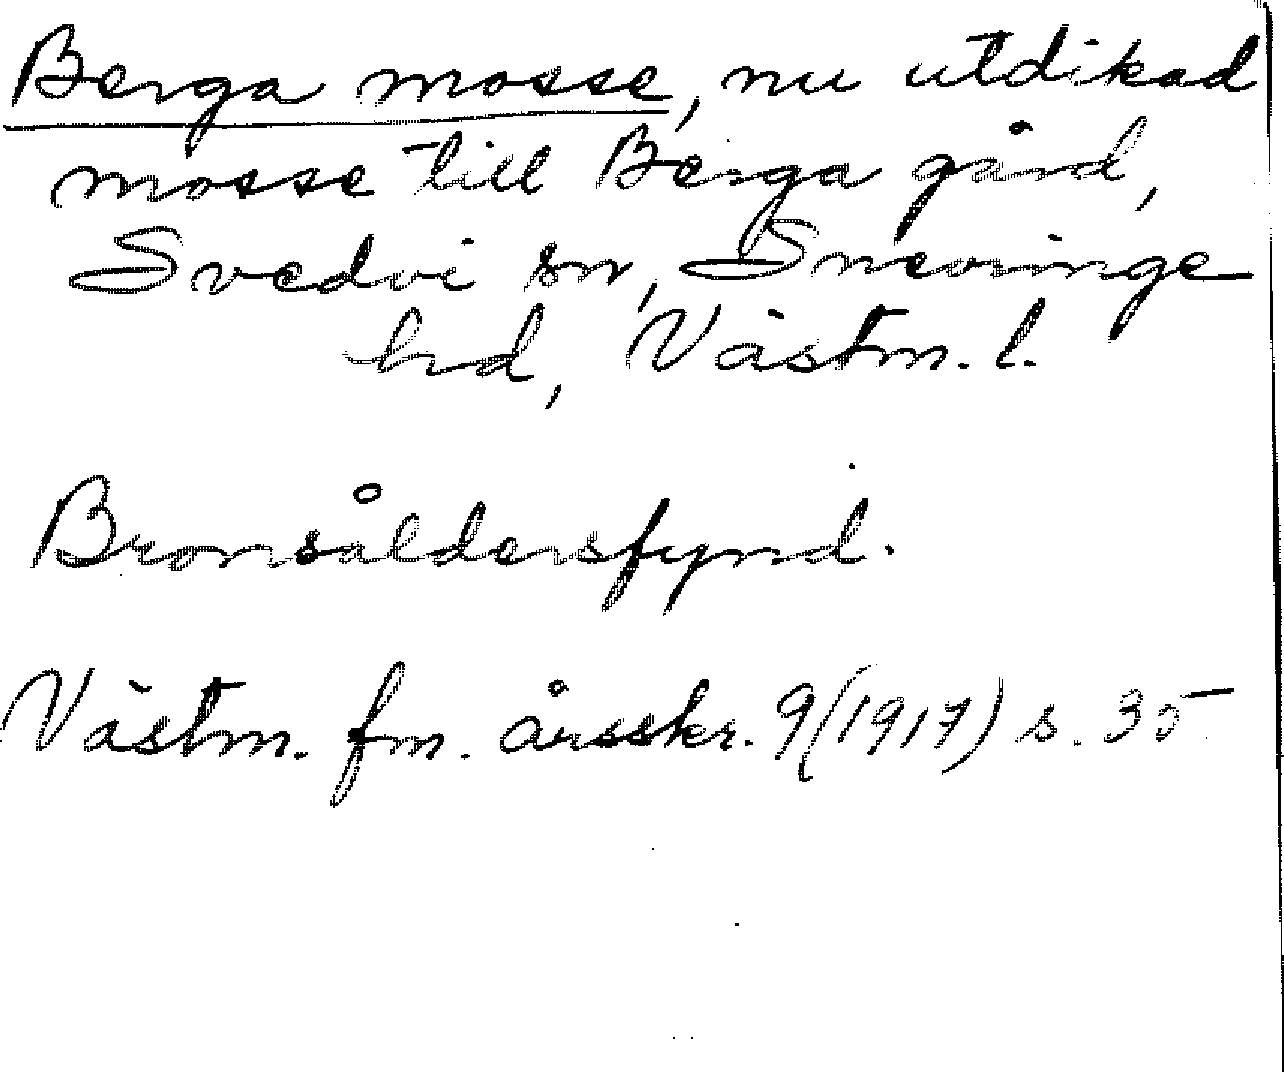 Berga mosse, nu utdikad
mosse till Berga gård,
Svedvi sn, Snevringe
hd, Västm. l.
Bronsåldersfynd.
Västm. fm. årsskr. 9 (1917) s. 35